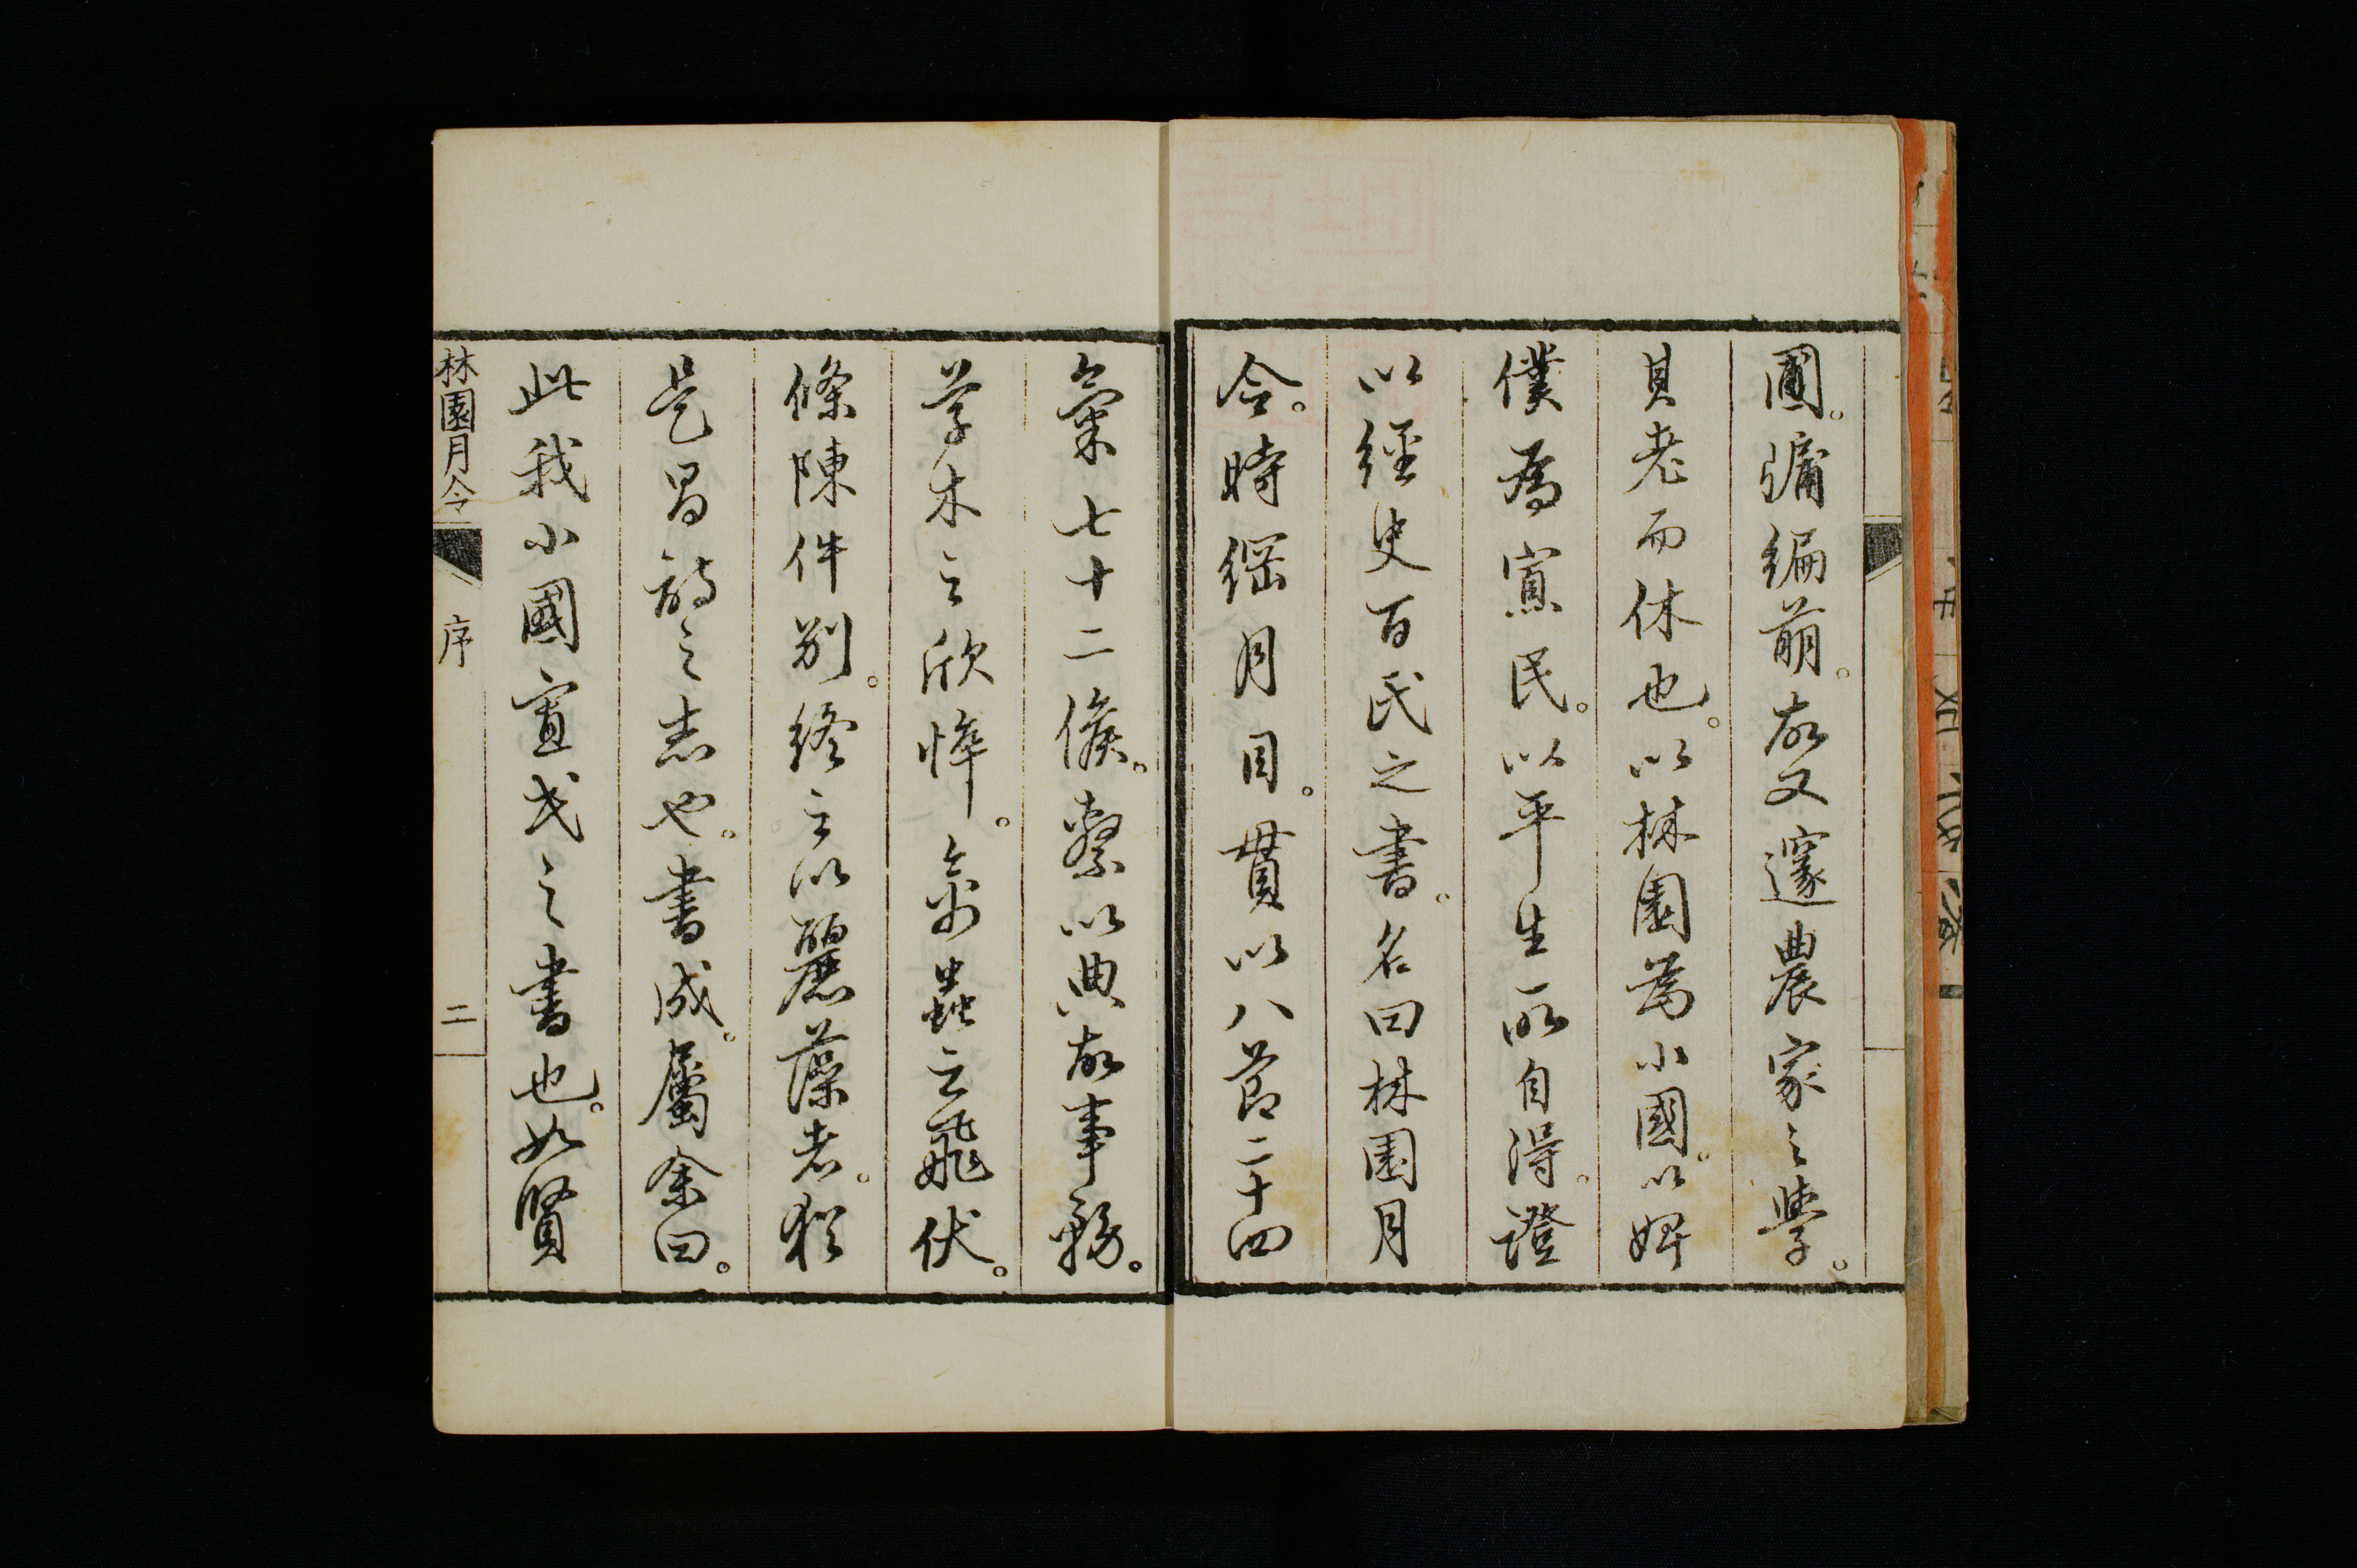 圃。彌編萠。故又邃農家之學。
其老而休也。以林園爲小國。以婢
僕爲寡民。以平生所自得。證
以經史百氏之書。名曰林園月
令。時綱月目。貫以八節二十四
氣七十二候。繫以典故事務。
草木之欣悴。禽蟲之飛伏。
條陳件別。終之以麗藻者。猶
是昌詩之志也。書成。屬余曰。
此我小國憲弐之書也。如賢
林園月令
序
二